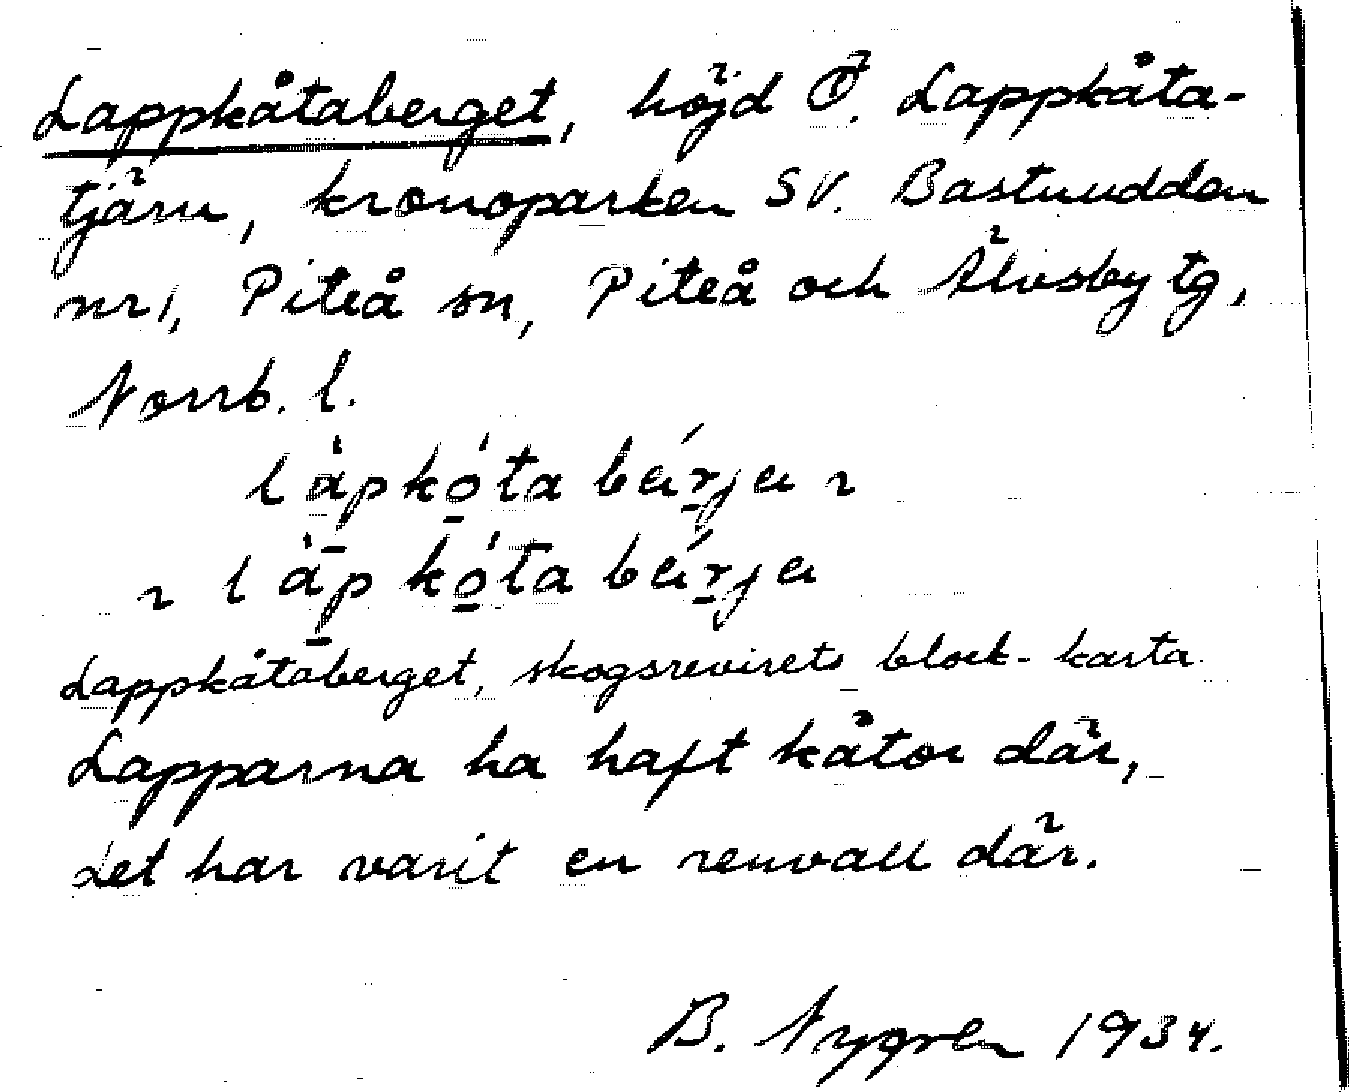 Lappkåtaberget, höjd Ö. Lappkåta-
tjärn, kronoparken SV. Bastuudden
nr 1, Piteå sn, Piteå och Älvsby tg,
Norrb. l.
låpkota bærja ɿ
ɿ låp kota bærja
Lappkåtaberget, skogsrevirets block-karta
Lapparna ha haft kåtor där,
det har varit en renvall där.
B. Nygren 1934.